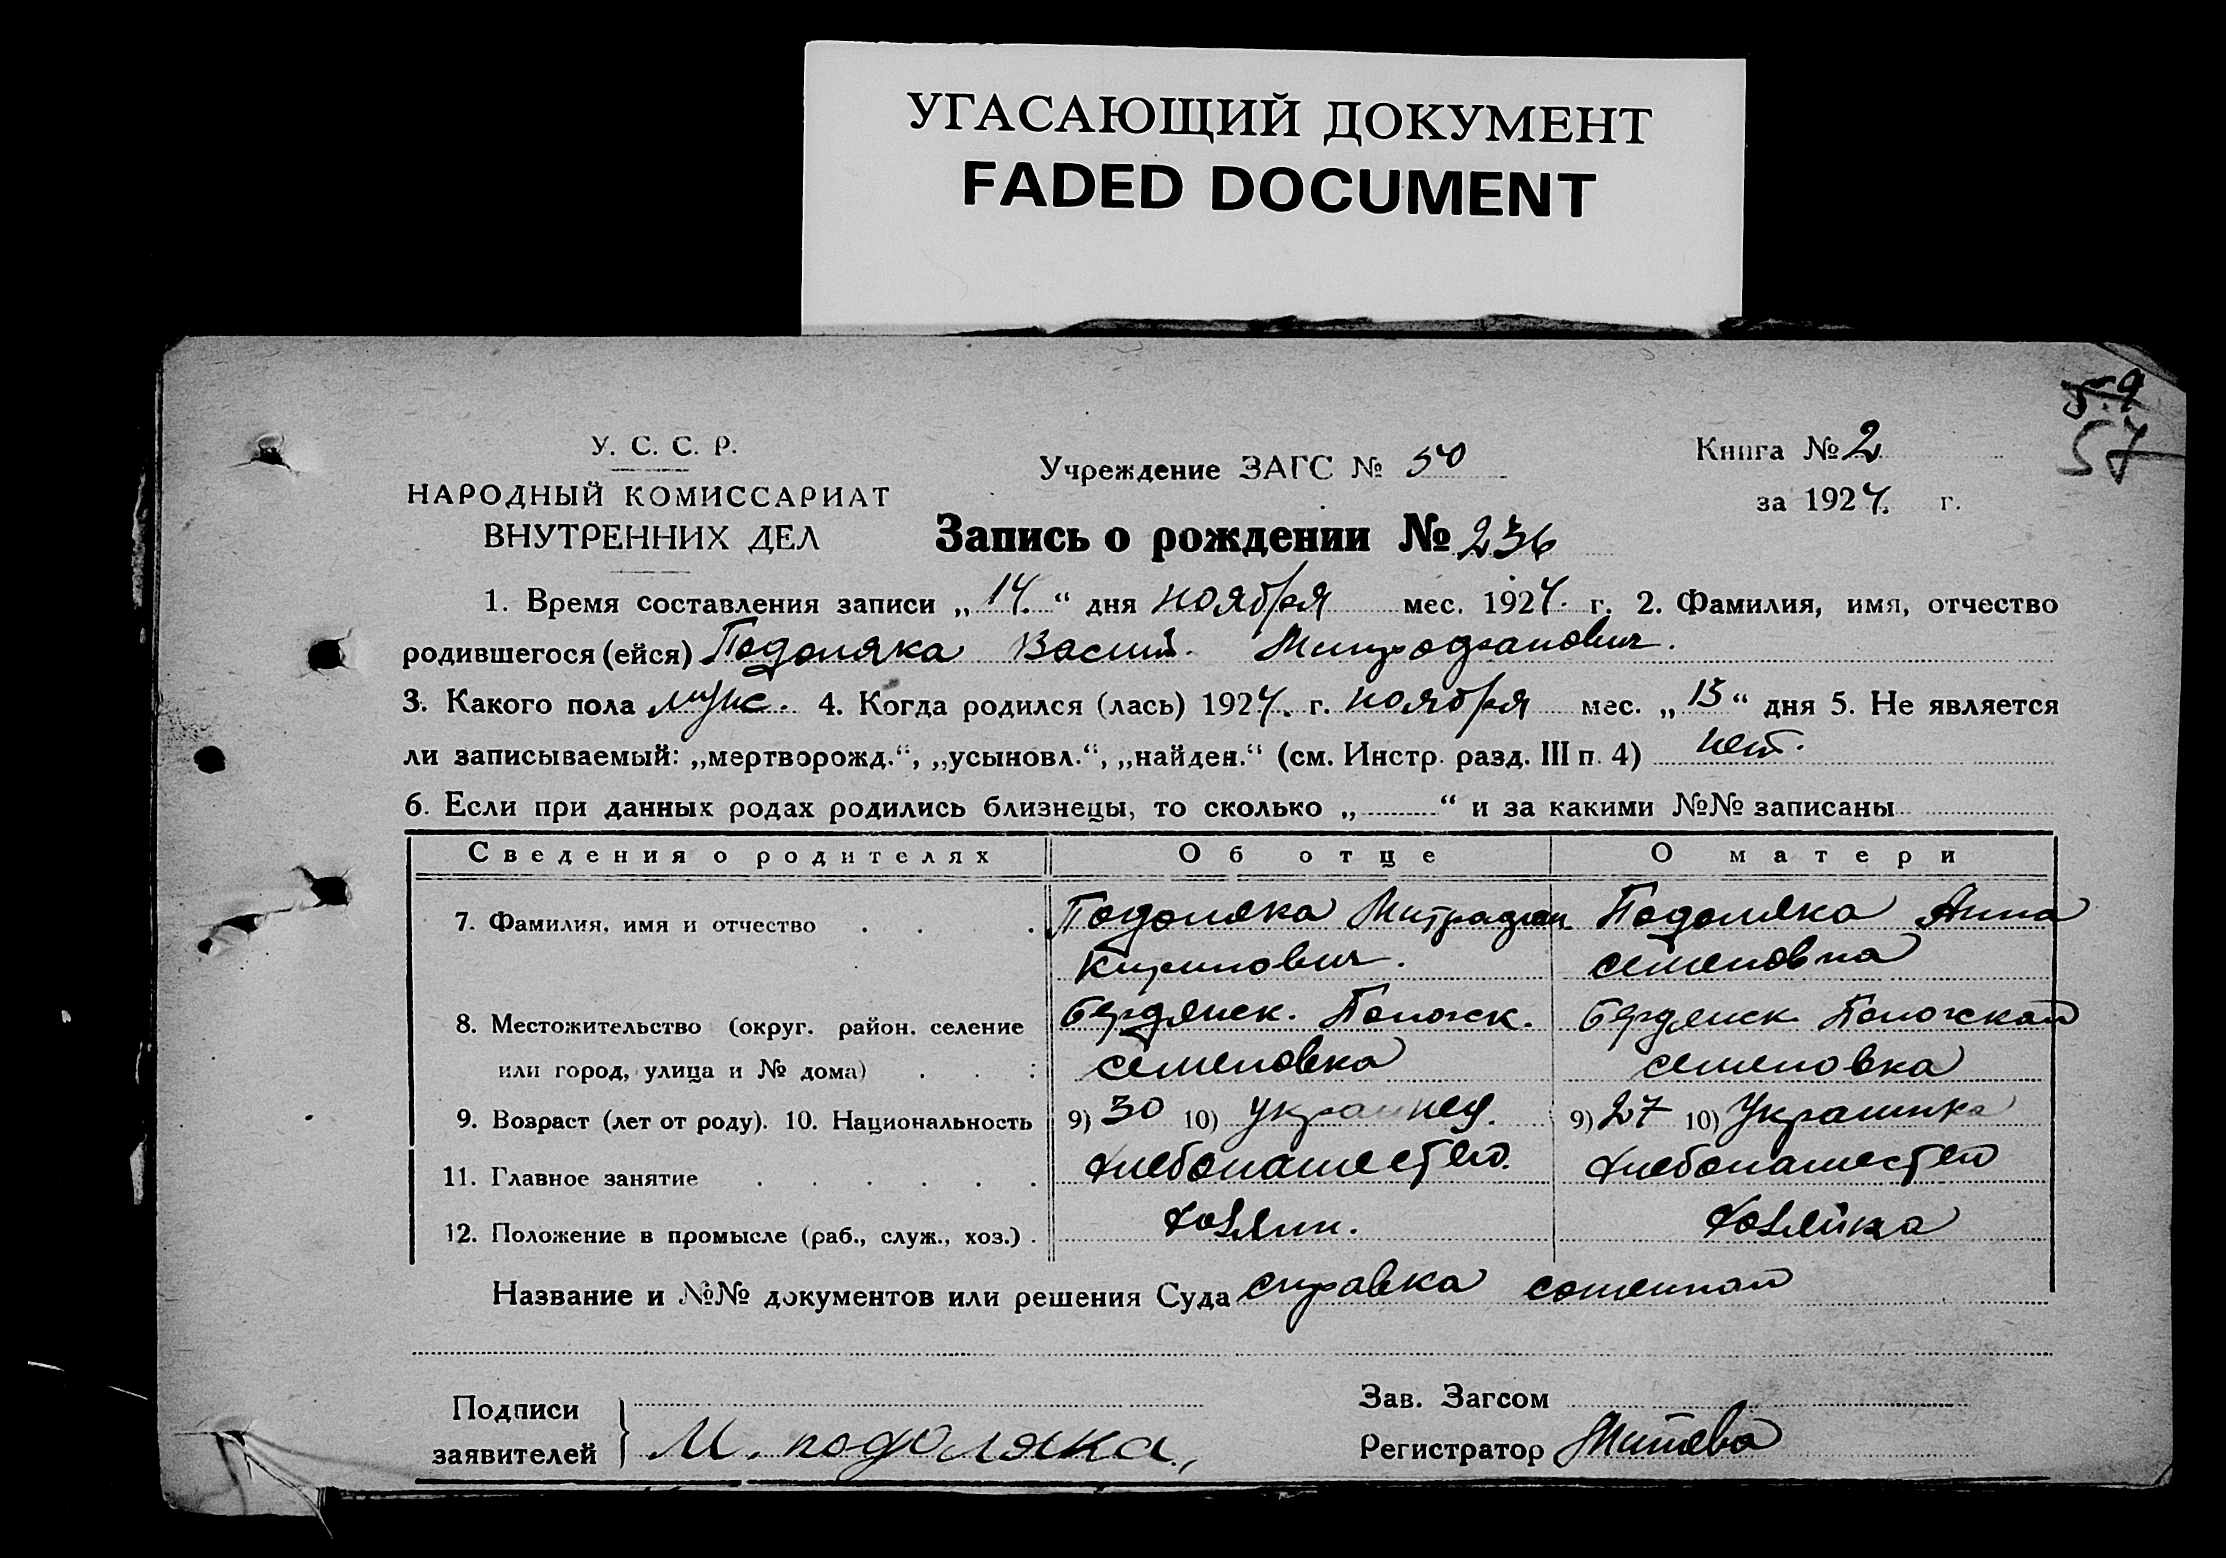 УГАСАЮЩИЙ ДОКУМЕНТ
FADED DOCUMENT
59
57
У. С. С. Р.
НАРОДНЫЙ КОМИССАРИАТ
ВНУТРЕННИХ ДЕЛ
Учреждение ЗАГС № 50
Книга № 2
за 1924. г.
Запись о рождении № 236
1. Время составления записи „ 14. “ дня ноября мес. 1924. г. 2. Фамилия, имя, отчество
родившегося (ейся) Подоляка Васил. Митрофанович.
3. Какого пола муж. 4. Когда родился (лась) 1924. г. ноября мес. „ 13 “ дня 5. Не является
ли записываемый: „мертворожд.“, „усыновл.“, „найден.“ (см. Инстр. разд. III п. 4) нет.
6. Если при данных родах родились близнецы, то сколько „ “ и за какими №№ записаны
Сведения о родителях Об отце О матери
7. Фамилия, имя и отчество Подоляка Митрафан Подоляка Анна
Кирилович. Семеновна
8. Местожительство (округ. район. селение Бердянск. Пологск. Бердянск. Пологской
или город, улица и № дома) Семеновка Семеновка
9. Возраст (лет от роду). 10. Национальность 9) 30 10) Украинец. 9) 27 10) Украинка
11. Главное занятие хлебопашество. хлебопашество
12. Положение в промысле (раб., служ., хоз.) хозяин. хозяйка
Название и №№ документов или решения Суда справка сотенной
Подписи
заявителей М. подоляка,
Зав. Загсом
Регистратор